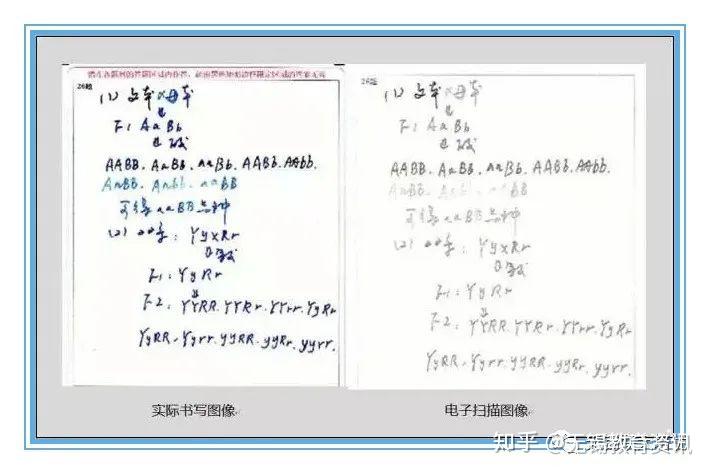 请在各题目的答题区域内作答，超出黑色矩形边框限定区域的答案无效
26题
(1) 父本×母本
F1 AaBb
AABB. AaBb. aaBb. AABb. AAbb.
AaBB. Aabb. aaBB
可得aaBB品种
(2) YyxRr
F1: YyRr
F2: YYRR. YYRr. YYrr. YyRr
YyRR. Yyrr. yyRR. yyRr. yyrr.
26题
(1) 父本×母本
F1 AaBb
AABB. AaBb. aaBb. AABb. AAbb.
AaBB. Aabb. aaBB
可得aaBB品种
(2) YyxRr
F1: YyRr
F2: YYRR. YYRr. YYrr. YyRr
YyRR. Yyrr. yyRR. yyRr. yyrr.
实际书写图像
电子扫描图像
知乎 @无锡教育资讯